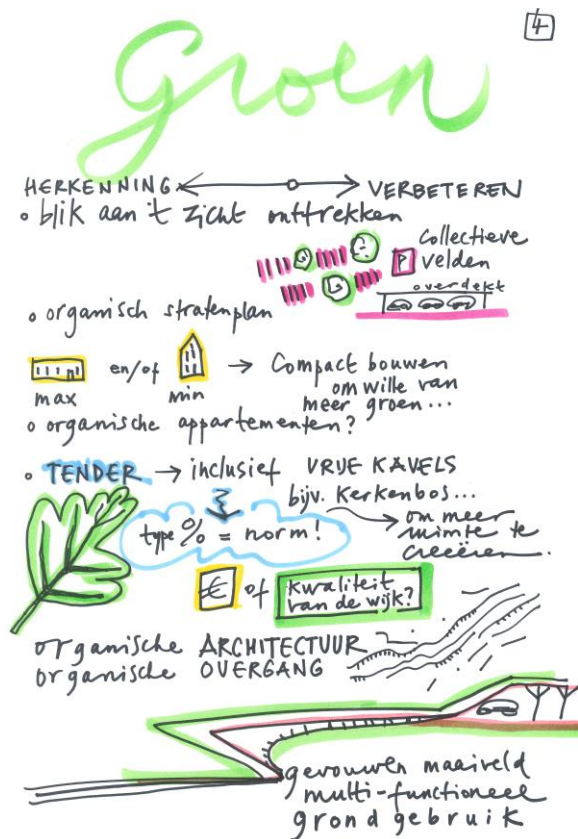 4
Groen
HERKENNING ←→ VERBETEREN
• blik aan 't zicht onttrekken
P Collectieve
velden
overdekt
• organisch stratenplan
en/of → Compact bouwen
max min om wille van
meer groen...
• organische appartementen?
• TENDER → inclusief VRIJE KAVELS
bijv. Kerkenbos...
type % = norm! → om meer
ruimte te
creëëren.
€ of kwaliteit
van de wijk?
organische ARCHITECTUUR
organische OVERGANG
gevouwen maaiveld
multi-functioneel
grondgebruik